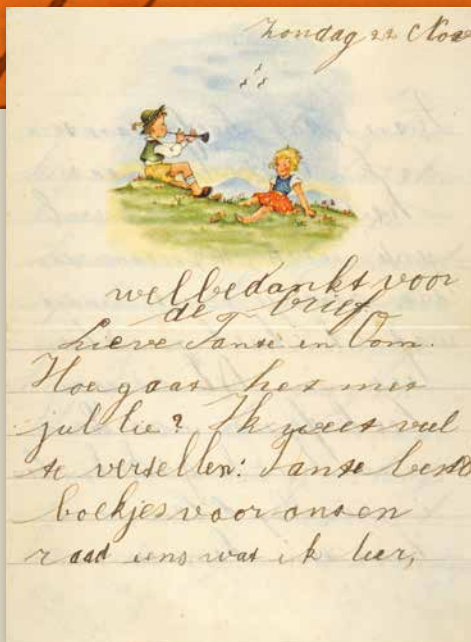 Zondag 22 Nov
welbedankt voor
de brief
Lieve Tante en Oom.
Hoe gaat het met
jul lie? Ik weet veel
te vertellen: Tante
boekjes voor ons en
raad eens wat ik leer,